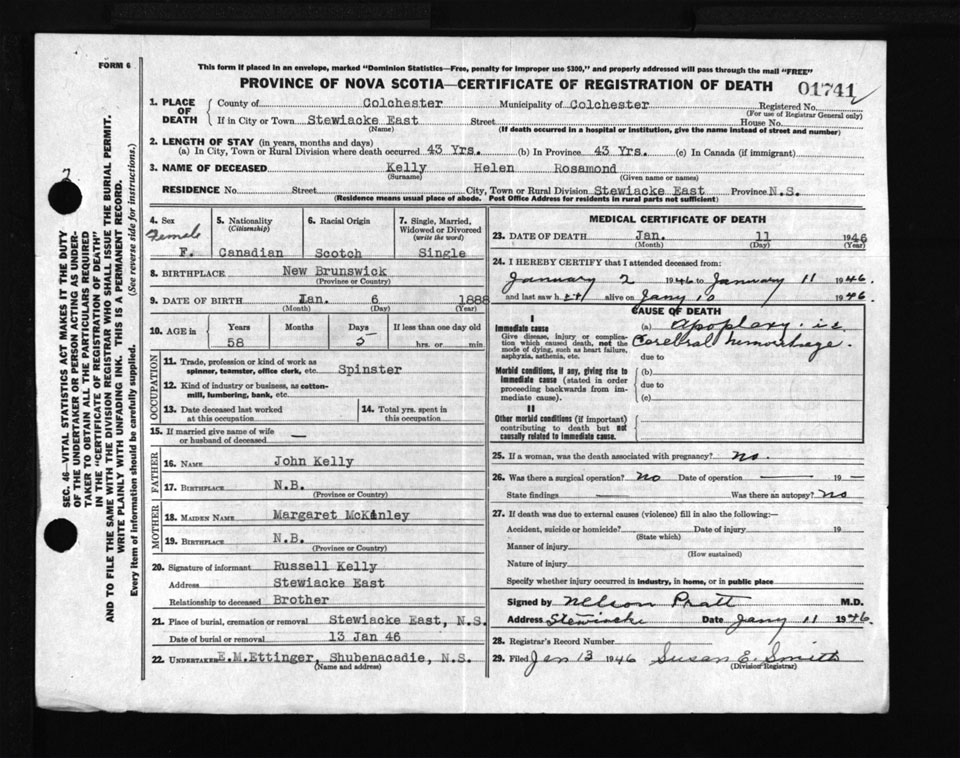 FORM 6
This form if placed in an envelope, marked "Dominion Statistics—Free, penalty for improper use $300," and properly addressed will pass through the mail "FREE"
PROVINCE OF NOVA SCOTIA—CERTIFICATE OF REGISTRATION OF DEATH
01741
1. PLACE OF DEATH
County of Colchester Municipality of Colchester Registered No.
(For use of Registrar General only)
If in City or Town Stewiacke East Street House No.
(Name) (If death occurred in a hospital or institution, give the name instead of street and number)
2. LENGTH OF STAY (in years, months and days)
(a) In City, Town or Rural Division where death occurred 43 Yrs. (b) In Province 43 Yrs. (c) In Canada (if immigrant)
3. NAME OF DECEASED Kelly Helen Rosamond
(Surname) (Given name or names)
RESIDENCE No Street City, Town or Rural Division Stewiacke East Province N.S.
(Residence means usual place of abode. Post Office Address for residents in rural parts not sufficient)
4. Sex
Female
F.
5. Nationality
(Citizenship)
Canadian
6. Racial Origin
Scotch
7. Single, Married,
Widowed or Divorced
(write the word)
Single
8. BIRTHPLACE New Brunswick
(Province or Country)
9. DATE OF BIRTH Jan. 6 1888
(Month) (Day) (Year)
10. AGE in
Years Months Days If less than one day old
58 5 hrs. or min.
OCCUPATION
11. Trade, profession or kind of work as
spinner, teamster, office clerk, etc. Spinster
12. Kind of industry or business, as cotton-
mill, lumbering, bank, etc.
13. Date deceased last worked
at this occupation
14. Total yrs. spent in
this occupation
15. If married give name of wife
or husband of deceased —
FATHER
16. NAME John Kelly
17. BIRTHPLACE N.B.
(Province or Country)
MOTHER
18. MAIDEN NAME Margaret McKinley
19. BIRTHPLACE N.B.
(Province or Country)
20. Signature of informant Russell Kelly
Address Stewiacke East
Relationship to deceased Brother
21. Place of burial, cremation or removal Stewiacke East, N.S.
Date of burial or removal 13 Jan 46
22. UNDERTAKER E.M.Ettinger, Shubenacadie, N.S.
(Name and address)
MEDICAL CERTIFICATE OF DEATH
23. DATE OF DEATH Jan. 11 1946
(Month) (Day) (Year)
24. I HEREBY CERTIFY that I attended deceased from:
January 2 1946 to January 11 1946.
and last saw her alive on Jany 10 1946.
CAUSE OF DEATH
I
Immediate cause
Give disease, injury or complica-
tion which caused death, not the
mode of dying, such as heart failure,
asphyxia, asthenia, etc.
(a) Apoplexy. i.e.
Cerebral hemorrhage.
due to
Morbid conditions, if any, giving rise to
immediate cause (stated in order
proceeding backwards from im-
mediate cause).
(b)
due to
(c)
II
Other morbid conditions (if important)
contributing to death but not
causally related to immediate cause.
25. If a woman, was the death associated with pregnancy? no.
26. Was there a surgical operation? No Date of operation — 19 —
State findings — Was there an autopsy? no
27. If death was due to external causes (violence) fill in also the following:—
Accident, suicide or homicide? Date of injury 19
(State which)
Manner of injury
(How sustained)
Nature of injury
Specify whether injury occurred in industry, in home, or in public place
Signed by Nelson Pratt M.D.
Address Stewiacke Date Jany 11 1946.
28. Registrar's Record Number
29. Filed Jan 13 1946 Susan E. Smith
(Division Registrar)
SEC. 46—VITAL STATISTICS ACT MAKES IT THE DUTY
OF THE UNDERTAKER OR PERSON ACTING AS UNDER-
TAKER TO OBTAIN ALL THE PARTICULARS REQUIRED
IN THE "CERTIFICATE OF REGISTRATION OF DEATH"
AND TO FILE THE SAME WITH THE DIVISION REGISTRAR WHO SHALL ISSUE THE BURIAL PERMIT.
WRITE PLAINLY WITH UNFADING INK. THIS IS A PERMANENT RECORD.
Every item of information should be carefully supplied. (See reverse side for instructions.)